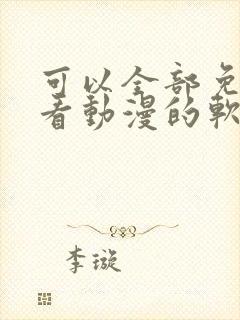 可以全部免
看動漫的軟
李璇